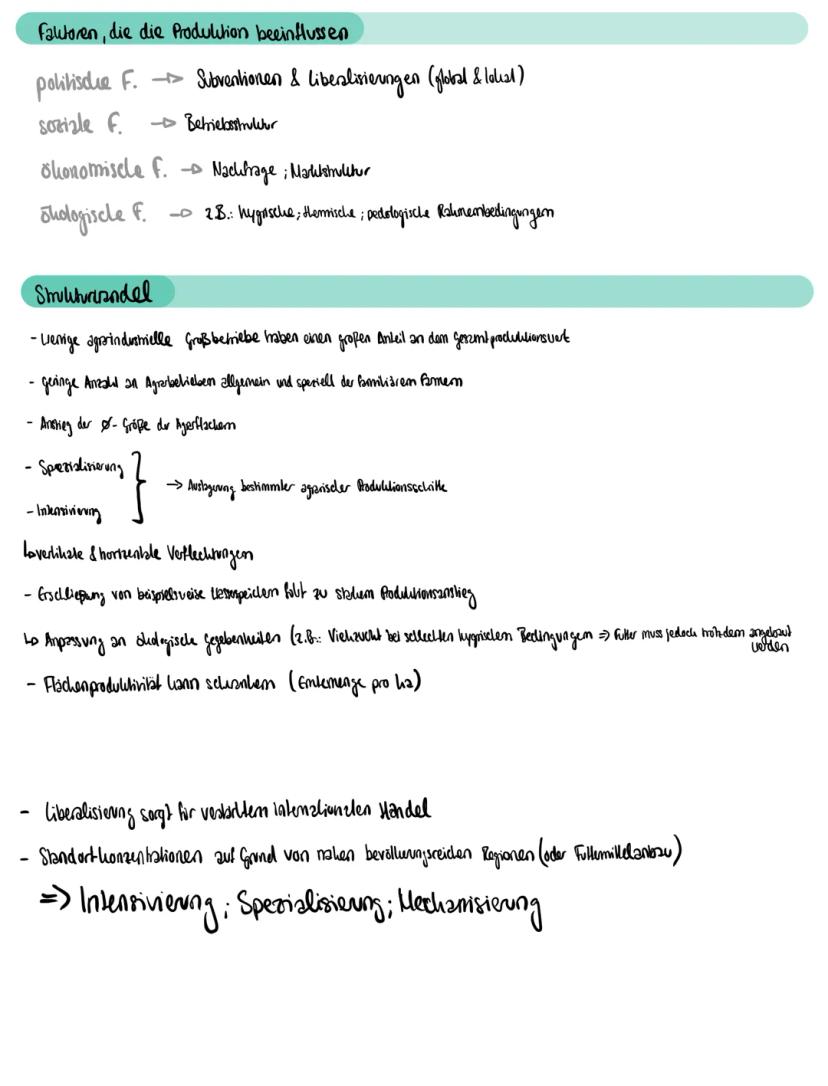 Faktoren, die die Produktion beeinflussen
politische F. → Subventionen & Liberalisierungen (global & lokal)
soziale F. → Betriebsstruktur
ökonomische F. → Nachfrage ; Marktstruktur
ökologische F. → z.B.: hygrische ; thermische ; pedologische Rahmenbedingungen
Strukturwandel
- wenige agrarindustrielle Großbetriebe haben einen großen Anteil an dem Gesamtproduktionswert
- geringe Anzahl an Agrarbetrieben allgemein und speziell der familiären Farmen
- Anstieg der Ø- Größe der Agrarflächen
- Spezialisierung
→ Auslagerung bestimmter agrarischer Produktionsschritte
- Intensivierung
↳ vertikale & horizontale Verflechtungen
- Erschließung von beispielsweise Wasserspeichern führt zu starkem Produktionsanstieg
↳ Anpassung an ökologische Gegebenheiten (z.B.: Viehzucht bei schlechten hygrischen Bedingungen ⇒ Futter muss jedoch trotzdem angebaut
werden
- Flächenproduktivität kann schwanken (Erntemenge pro ha)
- Liberalisierung sorgt für verstärkten internationalen Handel
- Standortkonzentrationen auf Grund von nahen bevölkerungsreichen Regionen (oder Futtermittelanbau)
=> Intensivierung ; Spezialisierung ; Mechanisierung